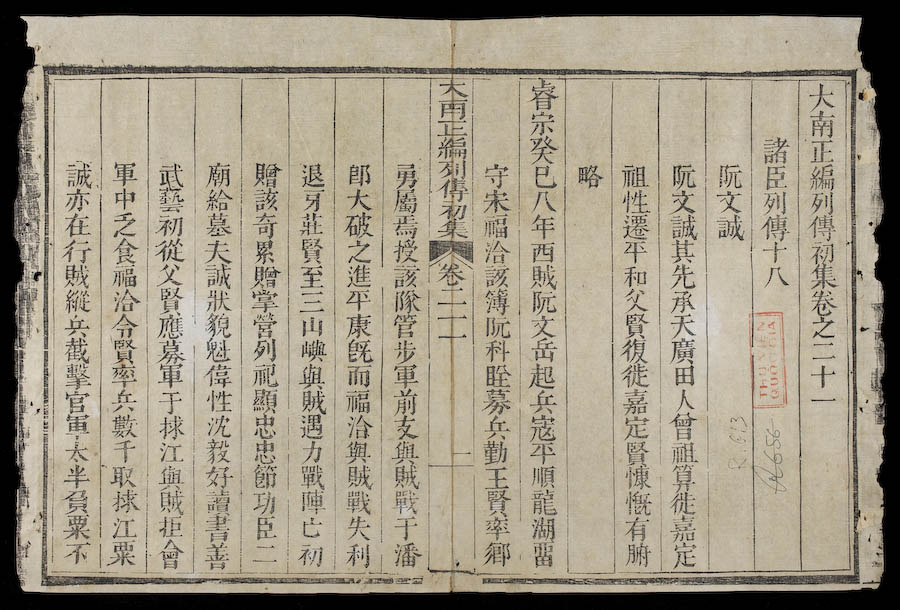 大南正編列傳初集卷之二十一
諸臣列傳十八
阮文誠
阮文誠其先承天廣田人曾祖算徙嘉定
祖性遷平和父賢復徙嘉定賢慷慨有腑
略
睿宗癸巳八年西賊阮文岳起兵寇平順龍湖畱
守宋福洽該簿阮科眰募兵勤王賢率鄉
大南正編列傳初集 卷二十一 一
勇屬焉授該隊管步軍前支與賊戰于潘
郎大破之進平康旣而福洽與賊戰失利
退牙莊賢至三山嶼與賊遇力戰陣亡初
贈該奇累贈掌營列祀顯忠忠節功臣二
廟給墓夫誠狀貌魁偉性沈毅好讀書善
武藝初從父賢應募軍于捄江與賊拒會
軍中乏食福洽令賢率兵數千取捄江粟
誠亦在行賊縱兵截擊官軍太半負粟不
THU VIEN
QUOC GIA
R.613